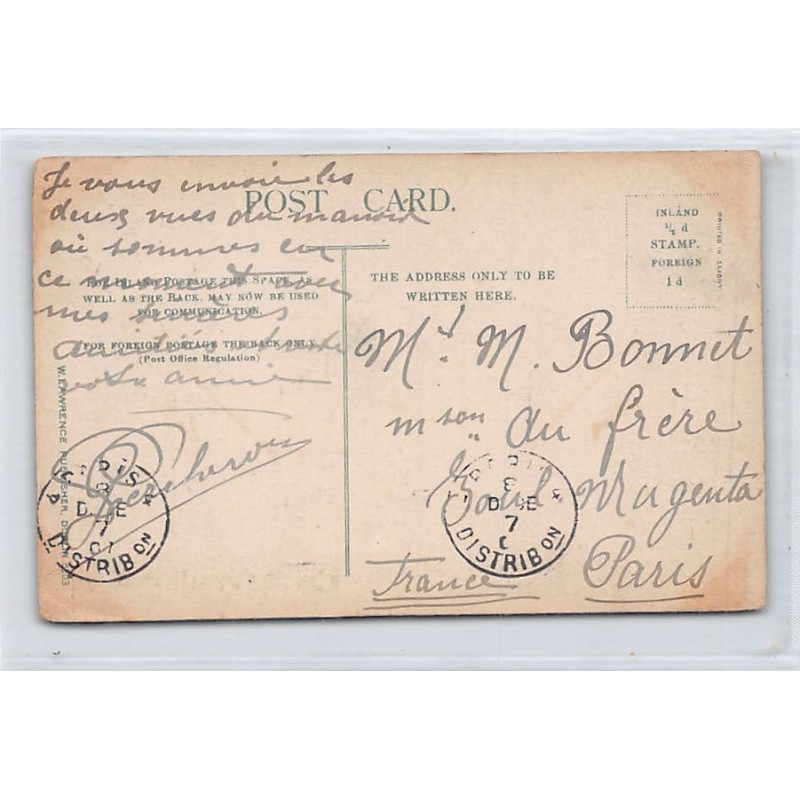 POST CARD.
Je vous envoie les
deux vues du manoir
où sommes en
ce moment avec
mes
amitiés
votre amie
FOR INLAND POSTAGE THIS SPACE, AS
WELL AS THE BACK, MAY NOW BE USED
FOR COMMUNICATION.
FOR FOREIGN POSTAGE THE BACK ONLY.
(Post Office Regulation)
W. LAWRENCE PUBLISHER, DUBLIN
THE ADDRESS ONLY TO BE
WRITTEN HERE.
INLAND
½ d
STAMP.
FOREIGN
1 d
PRINTED IN SAXONY
Mr M. Bonnet
mson du frère
Boul Magenta
France Paris
PARIS
8
DE
7
DISTRIBON
PARIS
8
DE
7
DISTRIBON